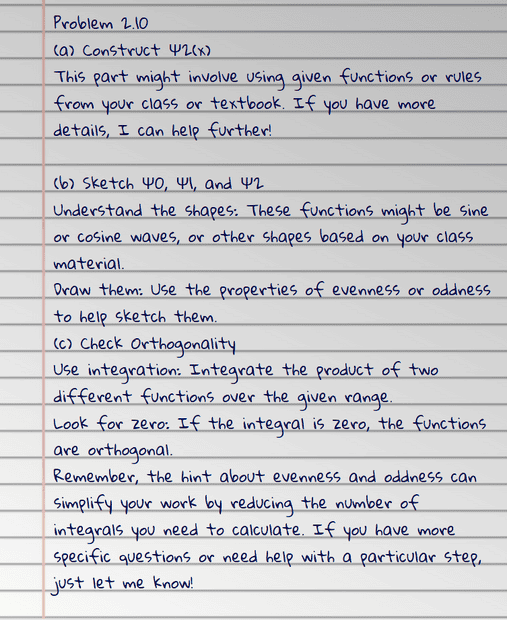 Problem 2.10
(a) Construct Ψ2(x)
This part might involve using given functions or rules
from your class or textbook. If you have more
details, I can help further!
(b) Sketch Ψ0, Ψ1, and Ψ2
Understand the shapes: These functions might be sine
or cosine waves, or other shapes based on your class
material.
Draw them: Use the properties of evenness or oddness
to help sketch them.
(c) Check Orthogonality
Use integration: Integrate the product of two
different functions over the given range.
Look for zero: If the integral is zero, the functions
are orthogonal.
Remember, the hint about evenness and oddness can
simplify your work by reducing the number of
integrals you need to calculate. If you have more
specific questions or need help with a particular step,
just let me know!